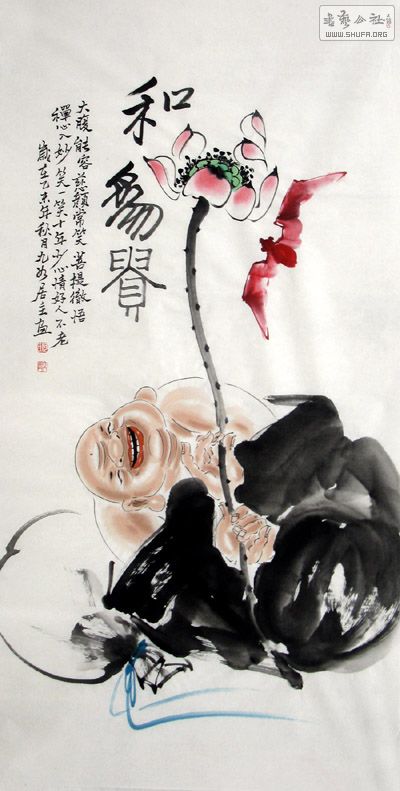 和為貴
大腹能容慈顏常笑菩提徹悟
禪心入妙笑一笑十年少心情好人不老
歲在乙未年秋月九如居主画
書藝公社
WWW.SHUFA.ORG